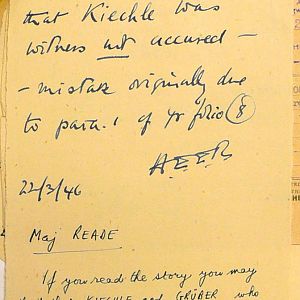 that Kiechle was
witness not accused —
— mistake originally due
to para. 1 of yr folio (8)
A.E.E.R
22/3/46
Maj READE
If you read the story you may
KIECHLE and GRÜBER who